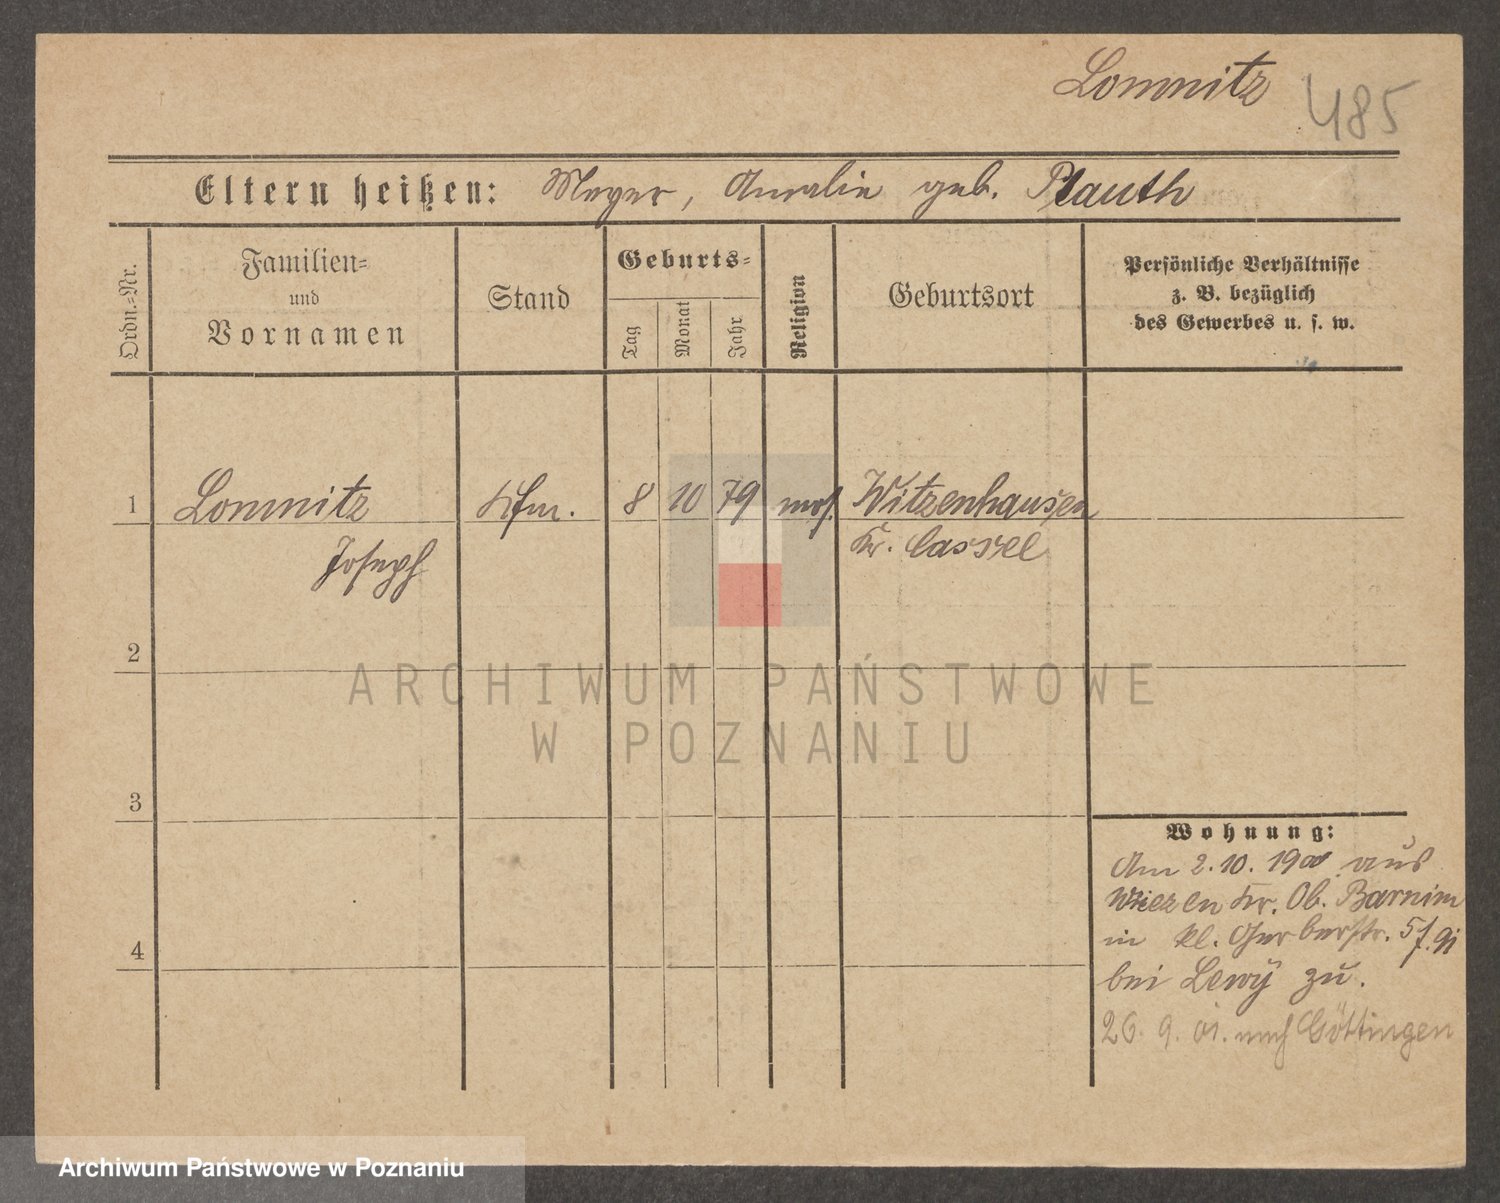 Lomnitz 485
Eltern heißen: Meyer, Amalie geb. Plauth
Ordn.-Nr.
Familien-
und
Vornamen
Stand
Geburts-
Tag
Monat
Jahr
Religion
Geburtsort
Persönliche Verhältnisse
z. B. bezüglich
des Gewerbes u. s. w.
1 Lomnitz Kfm. 8 10 79 mos. Witzenhausen
Joseph Kr. Cassel
2
3
4
Wohnung:
Am 2.10.1900 aus
Wriezen Kr. Ob. Barnim
in kl. Gerberstr.
bei Lewy zu.
26. 9. 01. nach Göttingen
ARCHIWUM PAŃSTWOWE
W POZNANIU
Archiwum Państwowe w Poznaniu